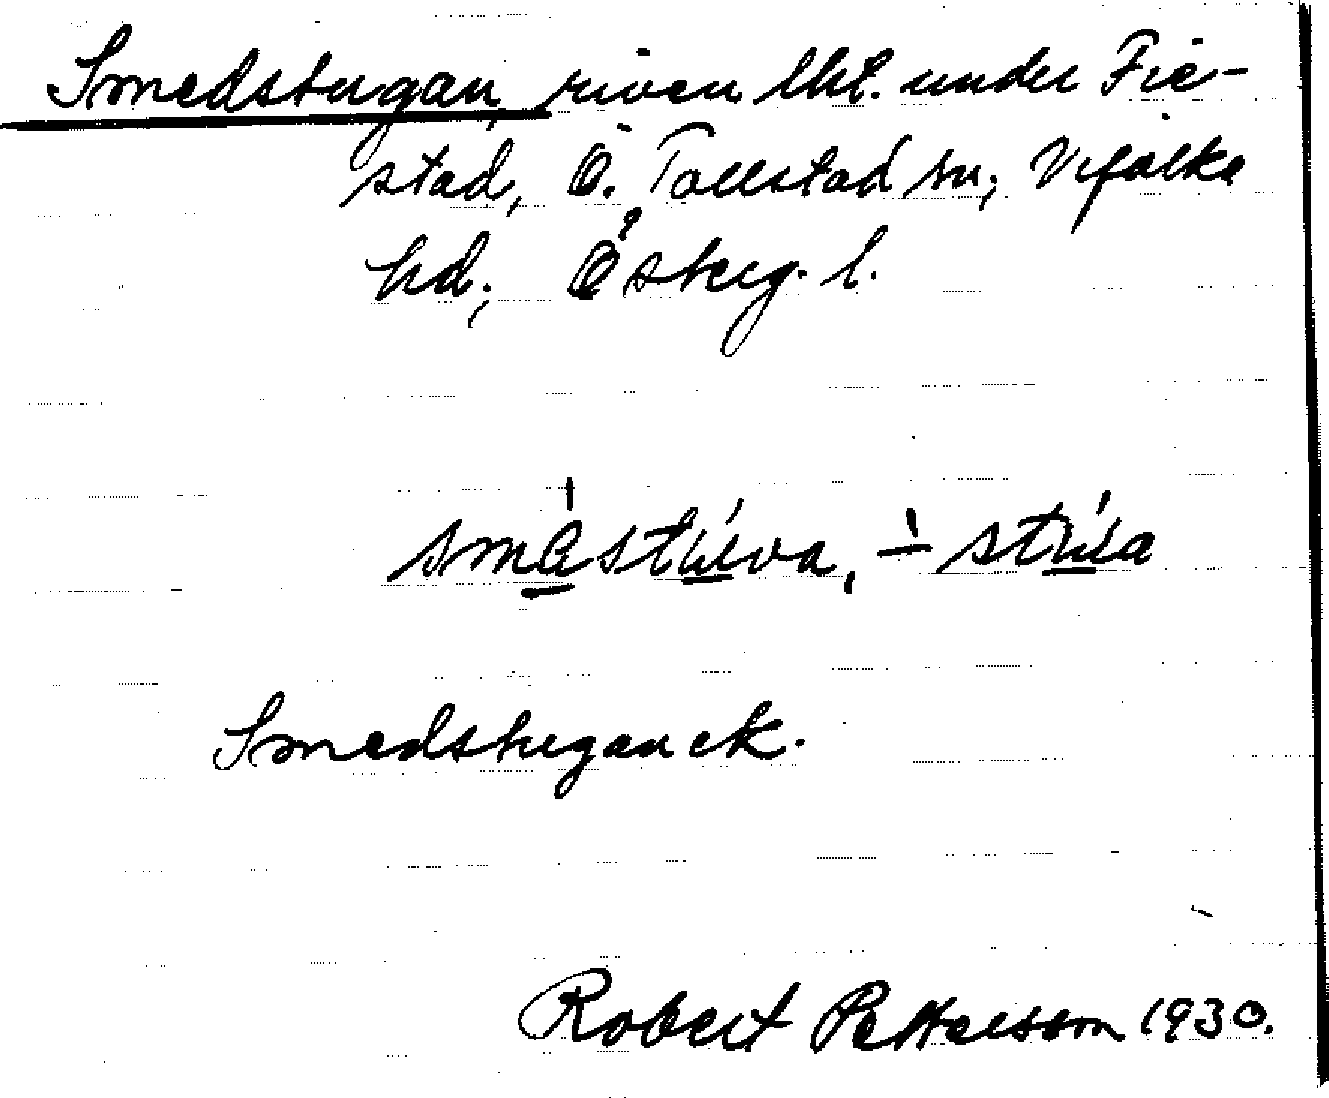 Smedstugan, riven lht. under Fie-
stad, Ö. Tollstad sn; Vifolka
hd; Österg. l.
Smedstugan ek.
Robert Pettersson 1930.